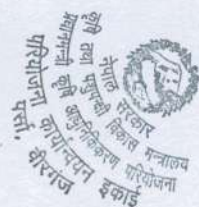 नेपाल सरकार
कृषि तथा पशुपन्छी विकास मन्त्रालय
प्रधानमन्त्री कृषि आधुनिकीकरण परियोजना
परियोजना कार्यान्वयन इकाई
पर्सा, वीरगंज